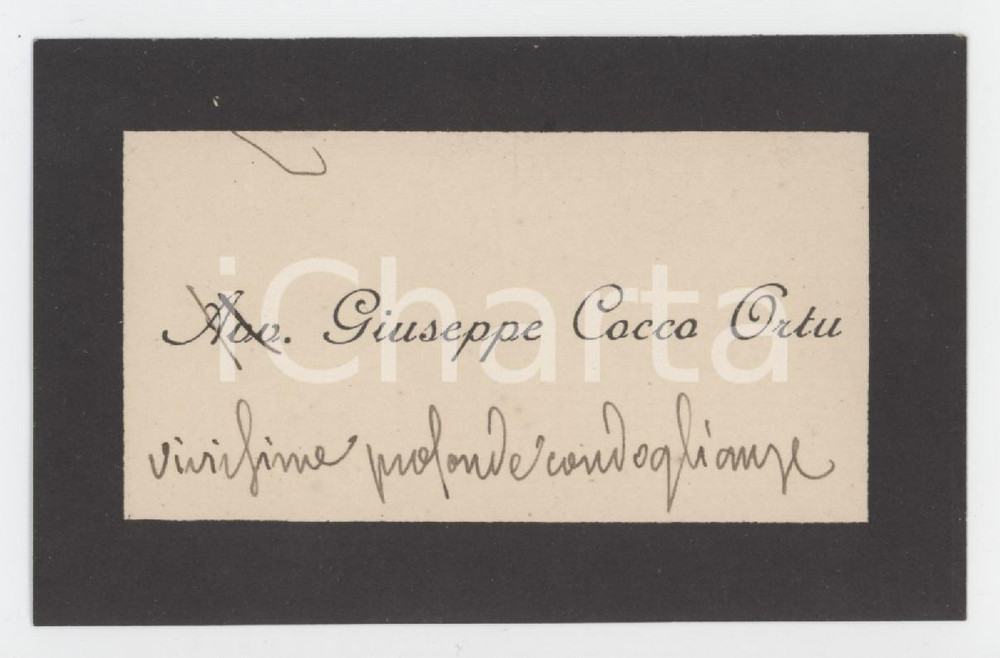 Avv. Giuseppe Cocco Ortu
iCharta
vivissime profonde condoglianze